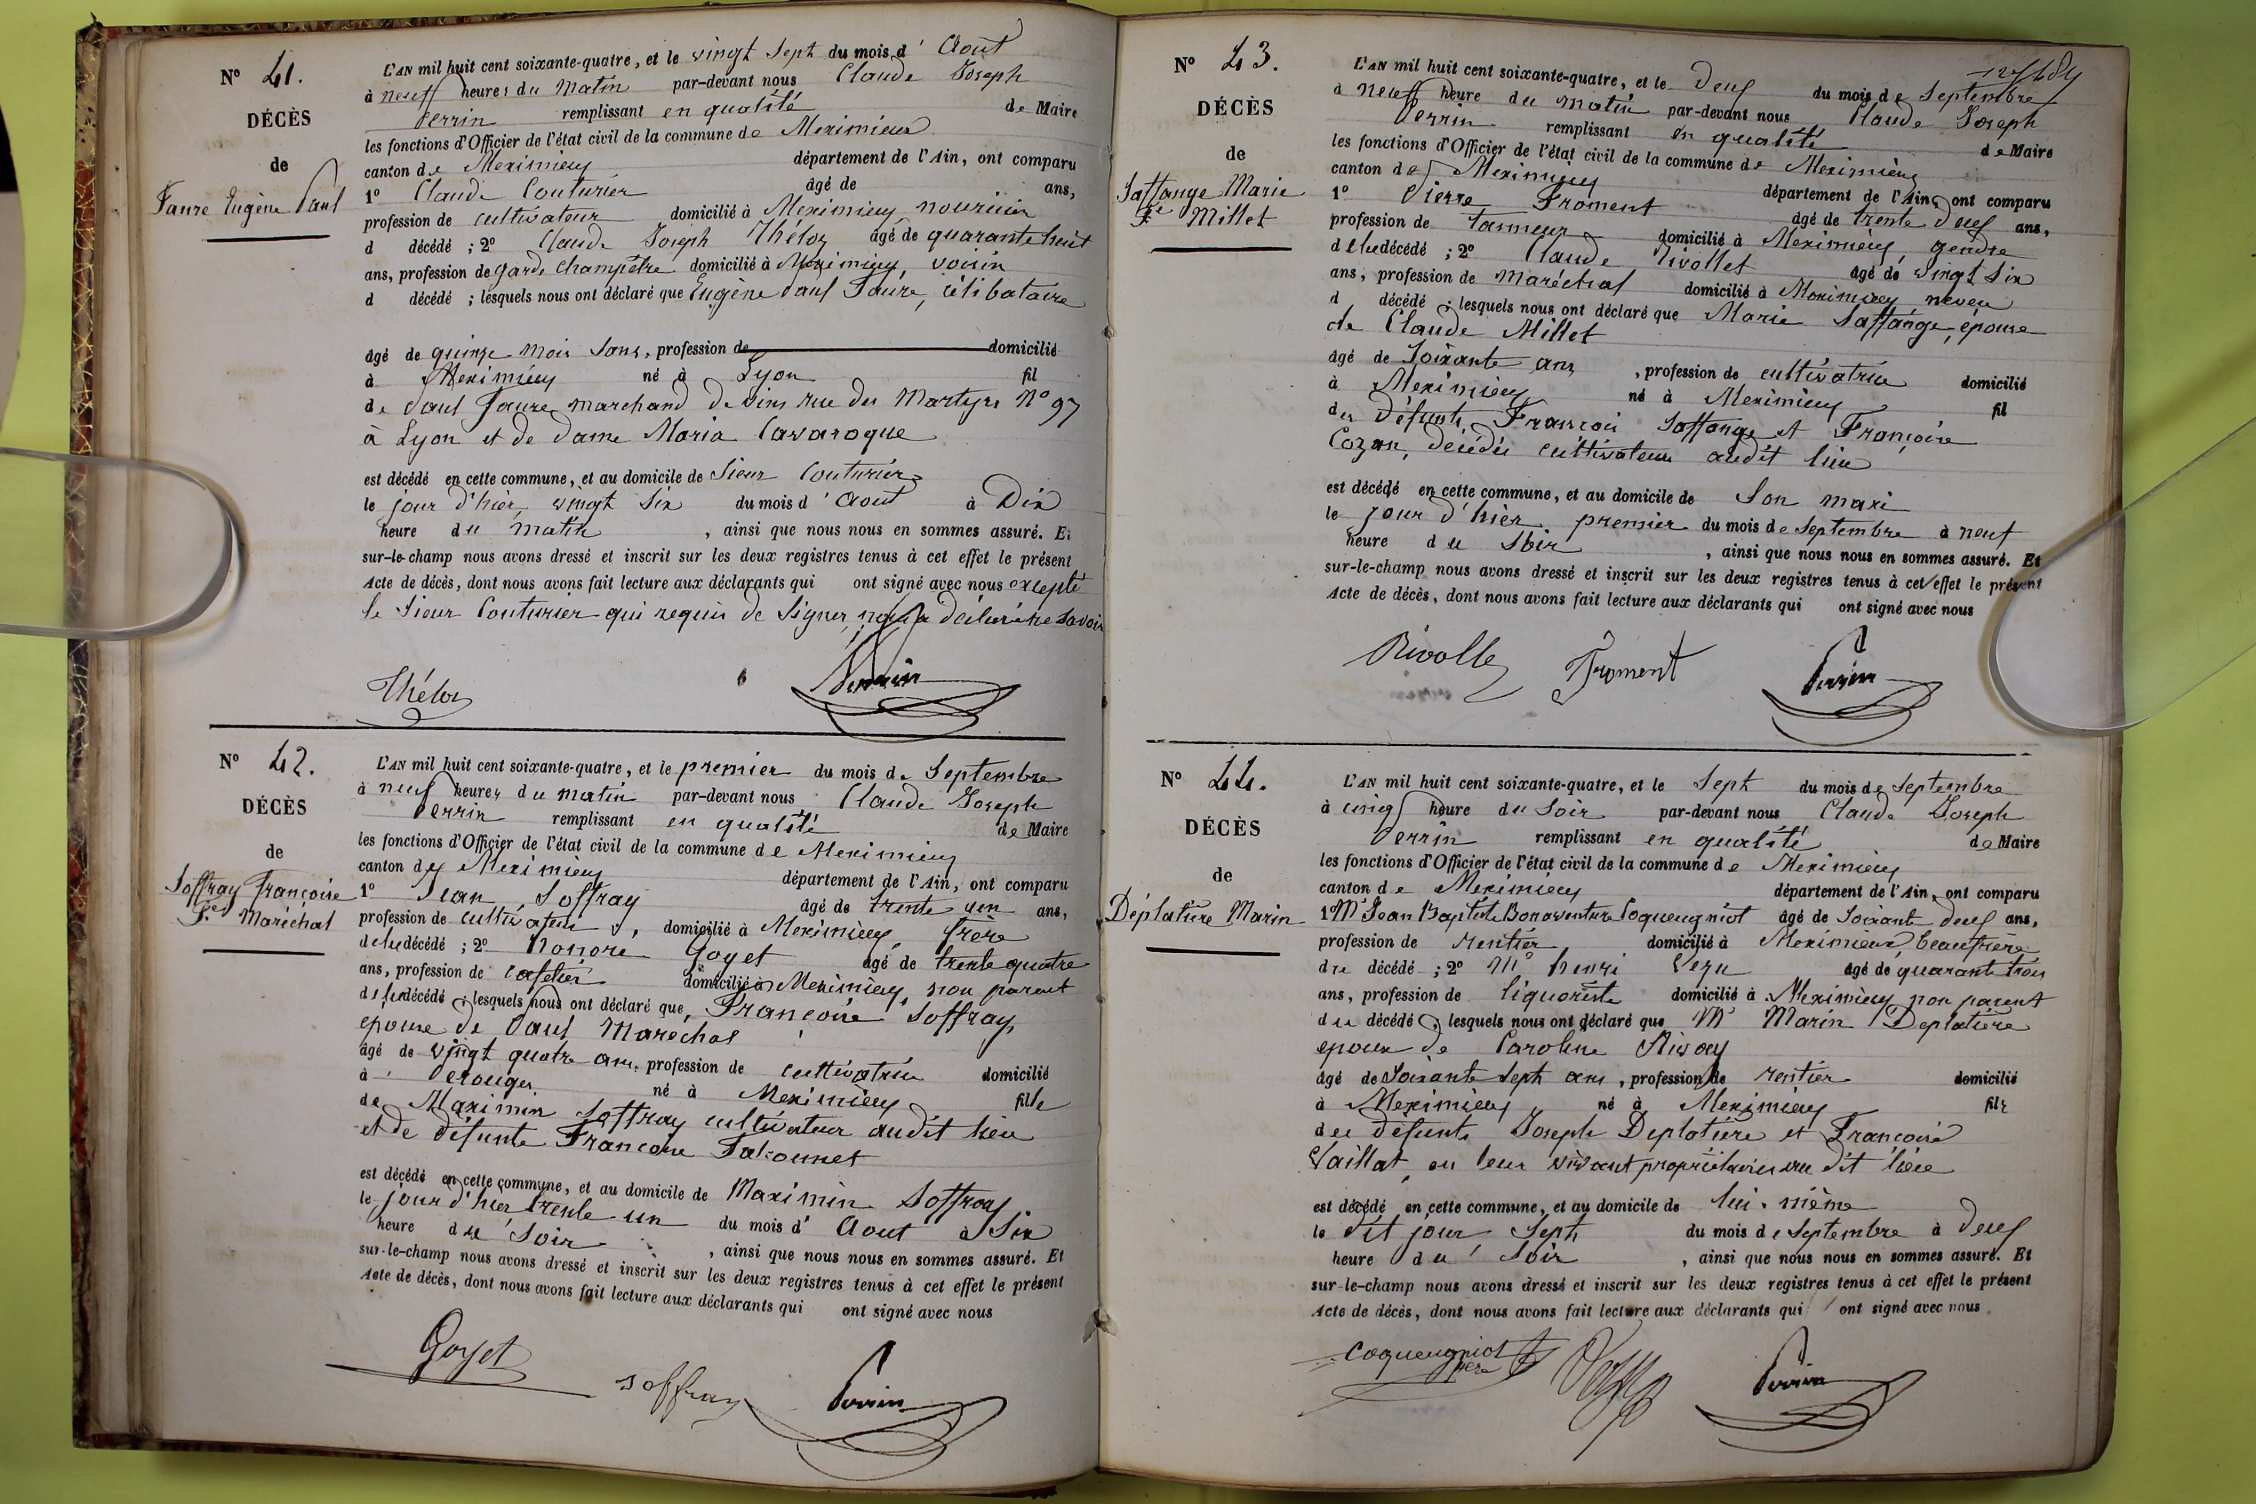 N° 41.
DÉCÈS
de
Faure Eugène Paul
L'AN mil huit cent soixante-quatre, et le vingt sept du mois d' Aout
à neuf heures du Matin par-devant nous Claude Joseph
Perrin remplissant en qualité de Maire
les fonctions d'Officier de l'état civil de la commune de Meximieux
canton de Meximieux département de l'Ain, ont comparu
1° Claude Couturier âgé de ans,
profession de cultivateur domicilié à Meximieux nouricier
d décédé ; 2° Claude Joseph Théloz âgé de quarante huit
ans, profession de garde champêtre domicilié à Meximieux, voisin
d décédé ; lesquels nous ont déclaré que Eugène Paul Faure, célibataire
âgé de quinze mois sans, profession de domicilié
à Meximieux né à Lyon fil
de Paul Faure marchand de vins rue des Martyrs N° 97
à Lyon et de dame Maria Cavaroque
est décédé en cette commune, et au domicile de Sieur Couturier
le jour d'hier, vingt six du mois d' Aout à Dix
heure du matin , ainsi que nous nous en sommes assuré. Et
sur-le-champ nous avons dressé et inscrit sur les deux registres tenus à cet effet le présent
Acte de décès, dont nous avons fait lecture aux déclarants qui ont signé avec nous excepté
le Sieur Couturier qui requis de signer, nous a déclaré ne savoir
Théloz Perrin
N° 42.
DÉCÈS
de
Soffray Françoise
Fe Maréchal
L'AN mil huit cent soixante-quatre, et le premier du mois de Septembre
à neuf heures du matin par-devant nous Claude Joseph
Perrin remplissant en qualité de Maire
les fonctions d'Officier de l'état civil de la commune de Meximieux
canton de Meximieux département de l'Ain, ont comparu
1° Jean Soffray âgé de trente un ans,
profession de cultivateur, domicilié à Meximieux, frère
de la décédé ; 2° honoré Goyet âgé de trente quatre
ans, profession de cafetier domicilié à Meximieux, non parent
de la décédé ; lesquels nous ont déclaré que, Françoise Soffray,
épouse de Paul Maréchal
âgé de vingt quatre ans, profession de cultivatrice domicilié
à Perouges né à Meximieux fille
de Maximin Soffray cultivateur audit lieu
et de défunte Françoise Falconnet
est décédé en cette commune, et au domicile de Maximin Soffray
le jour d'hier trente un du mois d' Aout à Six
heure du soir , ainsi que nous nous en sommes assuré. Et
sur-le-champ nous avons dressé et inscrit sur les deux registres tenus à cet effet le présent
Acte de décès, dont nous avons fait lecture aux déclarants qui ont signé avec nous
Goyet soffray Perrin
N° 43.
DÉCÈS
de
Saffange Marie
Fe Millet
L'AN mil huit cent soixante-quatre, et le Deux du mois de Septembre
à neuf heure du matin par-devant nous Claude Joseph
Perrin remplissant en qualité de Maire
les fonctions d'Officier de l'état civil de la commune de Meximieux
canton de Meximieux département de l'Ain, ont comparu
1° Pierre Froment âgé de trente deux ans,
profession de tanneur domicilié à Meximieux, gendre
de la décédé ; 2° Claude Rivollet âgé de vingt six
ans, profession de maréchal domicilié à Meximieux neveu
d décédé ; lesquels nous ont déclaré que Marie Saffange, épouse
de Claude Millet
âgé de soixante ans , profession de cultivatrice domicilié
à Meximieux né à Meximieux fil
des défunts, François Saffange et Françoise
Cozan, décédés cultivateurs audit lieu
est décédé en cette commune, et au domicile de Son mari
le jour d'hier premier du mois de septembre à neuf
heure du Soir , ainsi que nous nous en sommes assuré. Et
sur-le-champ nous avons dressé et inscrit sur les deux registres tenus à cet effet le présent
Acte de décès, dont nous avons fait lecture aux déclarants qui ont signé avec nous
Rivolle Froment Perrin
N° 44.
DÉCÈS
de
Déplatière Marin
L'AN mil huit cent soixante-quatre, et le Sept du mois de Septembre
à cinq heure du Soir par-devant nous Claude Joseph
Perrin remplissant en qualité de Maire
les fonctions d'Officier de l'état civil de la commune de Meximieux
canton de Meximieux département de l'Ain, ont comparu
1° Mr Jean Baptiste Bonaventure Coqueugniot âgé de soixante deux ans,
profession de rentier domicilié à Meximieux, beaufrère
du décédé ; 2° Mr henri Vezu âgé de quarante trois
ans, profession de liquoriste domicilié à Meximieux non parent
du décédé, lesquels nous ont déclaré que Mr Marin Deplatière
époux de Caroline Rivoy
âgé de soixante sept ans, profession de rentier domicilié
à Meximieux né à Meximieux fils
des défunts Joseph Deplatière et Françoise
Vaillat, en leur vivant propriétaires au dit lieu
est décédé en cette commune, et au domicile de lui-même
le dit jour Sept du mois de Septembre à deux
heure du Soir , ainsi que nous nous en sommes assuré. Et
sur-le-champ nous avons dressé et inscrit sur les deux registres tenus à cet effet le présent
Acte de décès, dont nous avons fait lecture aux déclarants qui ont signé avec nous
Coqueugniot père Perrin